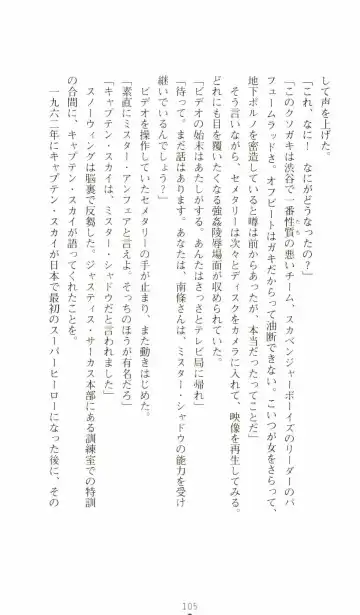 して声を上げた。
「これ、なに！　なにがどうなったの？」
「このクソガキは渋谷で一番性質の悪いチーム、スカベンジャーボーイズのリーダーのパ
フュームラッドさ。オフビートはガキだからって油断できない。こいつが女をさらって、
地下ポルノを密造していると噂は前からあったが、本当だったってことだ」
　そう言いながら、セメタリーは次々とディスクをカメラに入れて、映像を再生してみる。
どれにも目を覆いたくなる強姦陵辱場面が収められていた。
「ビデオの始末はあたしがする。あんたはさっさとテレビ局に帰れ」
「待って。まだ話はあります。あなたは、南條さんは、ミスター・シャドウの能力を受け
継いでいるんでしょう？」
　ビデオを操作していたセメタリーの手が止まり、また動きはじめた。
「素直にミスター・アンフェアと言えよ。そっちのほうが有名だろ」
「キャプテン・スカイは、ミスター・シャドウだと言われました」
　スノーウィングは脳裏で反芻した。ジャスティス・サーカス本部にある訓練室での特訓
の合間に、キャプテン・スカイが語ってくれたことを。
　一九六二年にキャプテン・スカイが日本で最初のスーパーヒーローになった後に、その
105